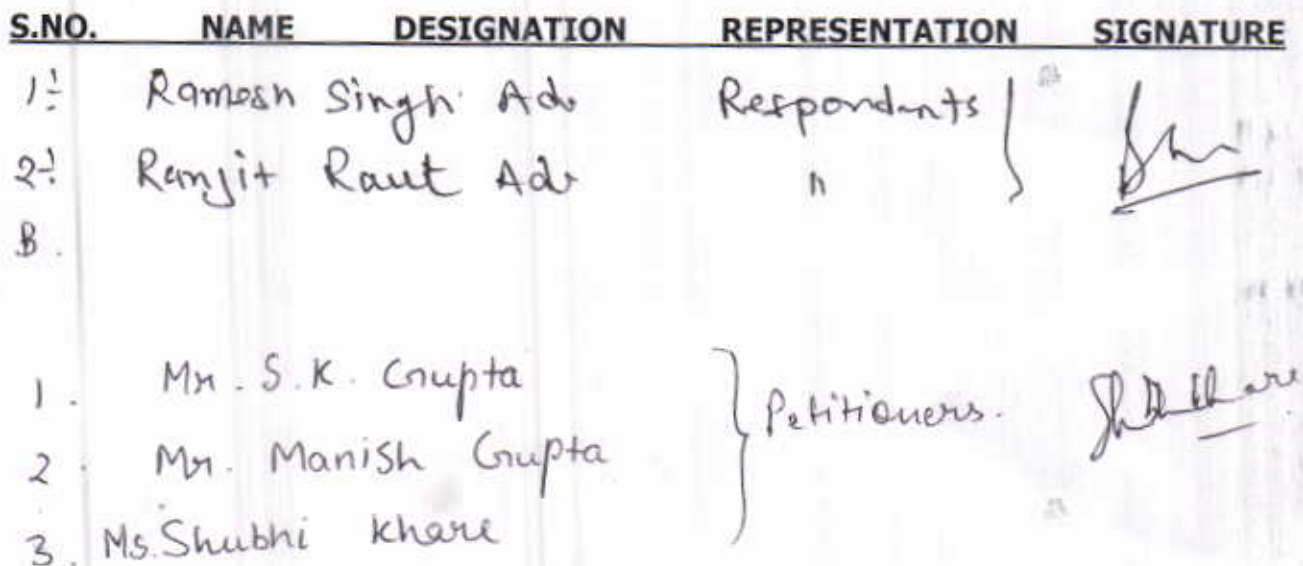 S.NO. NAME DESIGNATION REPRESENTATION SIGNATURE
1. Ramesh Singh Adv Respondents
2. Ranjit Raut Adv "
B.
1. Mr. S.K. Gupta
2. Mr. Manish Gupta Petitioners.
3. Ms. Shubhi Khare